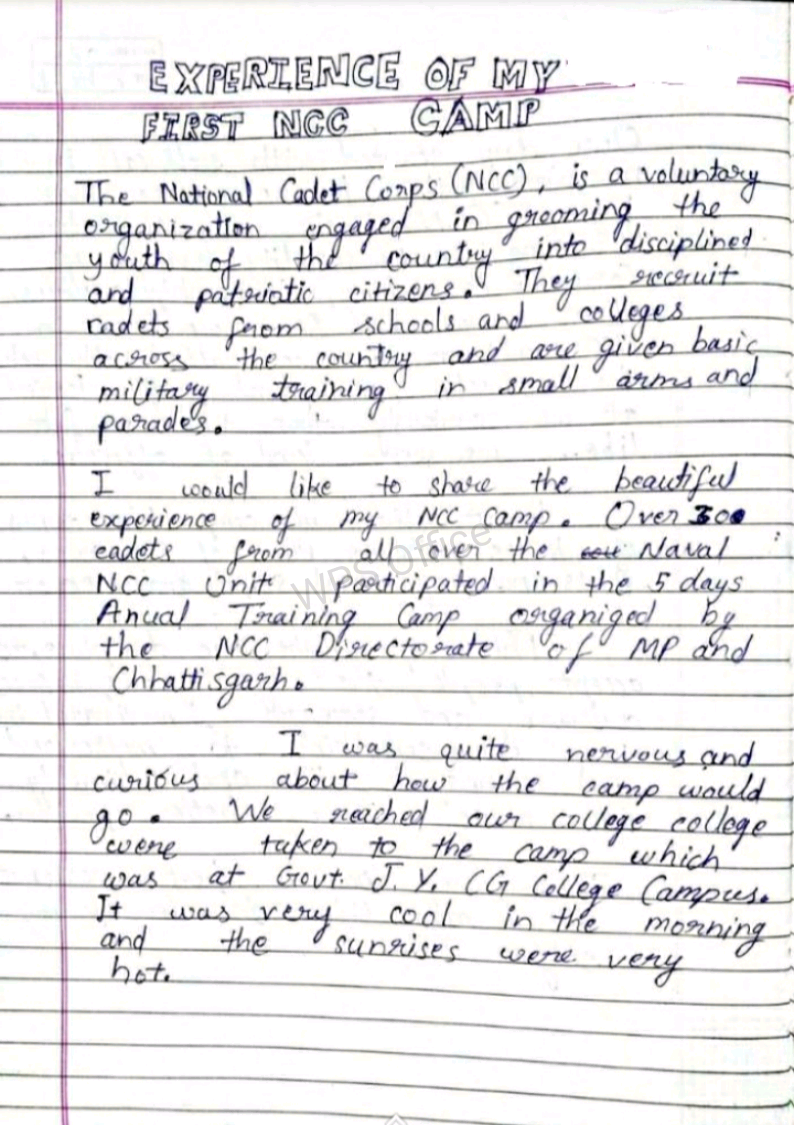 EXPERIENCE OF MY
FIRST NCC CAMP
The National Cadet Corps (NCC), is a voluntary
organization engaged in grooming the
youth of the country into disciplined
and patriotic citizens. They recruit
radets from schools and colleges
across the country and are given basic
military training in small arms and
parades.
I would like to share the beautiful
experience of my NCC Camp. Over 300
cadets from all over the Naval
NCC Unit participated in the 5 days
Anual Training Camp organiged by
the NCC Directorate of MP and
Chhattisgarh.
I was quite nervous and
curious about how the camp would
go. We reached our college college
were taken to the camp which
was at Govt. J. Y. CG College Campus.
It was very cool in the morning
and the sunrises were very
hot.
WPS Office